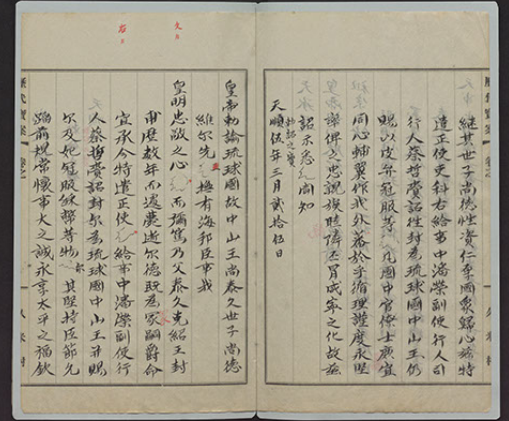 歴代寶案
久米村
繼其世子尚德性資仁孝國衆歸心茲特
遣正使吏科右給事中潘榮副使行人司
行人蔡哲賫詔往封爲琉球國中山王仍
賜以皮弁冠服等 凡國中官僚士庶宜
同心輔翼作我外藩於乎循理謹度永堅
之忠親族睦隣丕冒咸寧之化故茲
詔示悉 周知
之寶
天順伍年三月貳拾伍日
皇帝勅諭琉球國故中山王尚泰久世子尚德
維尔先 撫有海邦臣事我
皇明忠敬之心 而彌篤乃父泰久克紹王封
甫歷数年而遽薨逝尔德既爲冢嗣爵命
宜承今特遣正使 給事中潘榮副使行
人蔡哲賫詔封尔爲琉球國中山王并賜
尔及妃冠服綵幣等物尔其堅持臣節允
蹈前規常懷事大之誠永享太平之福欽
歴代寶案
久米村